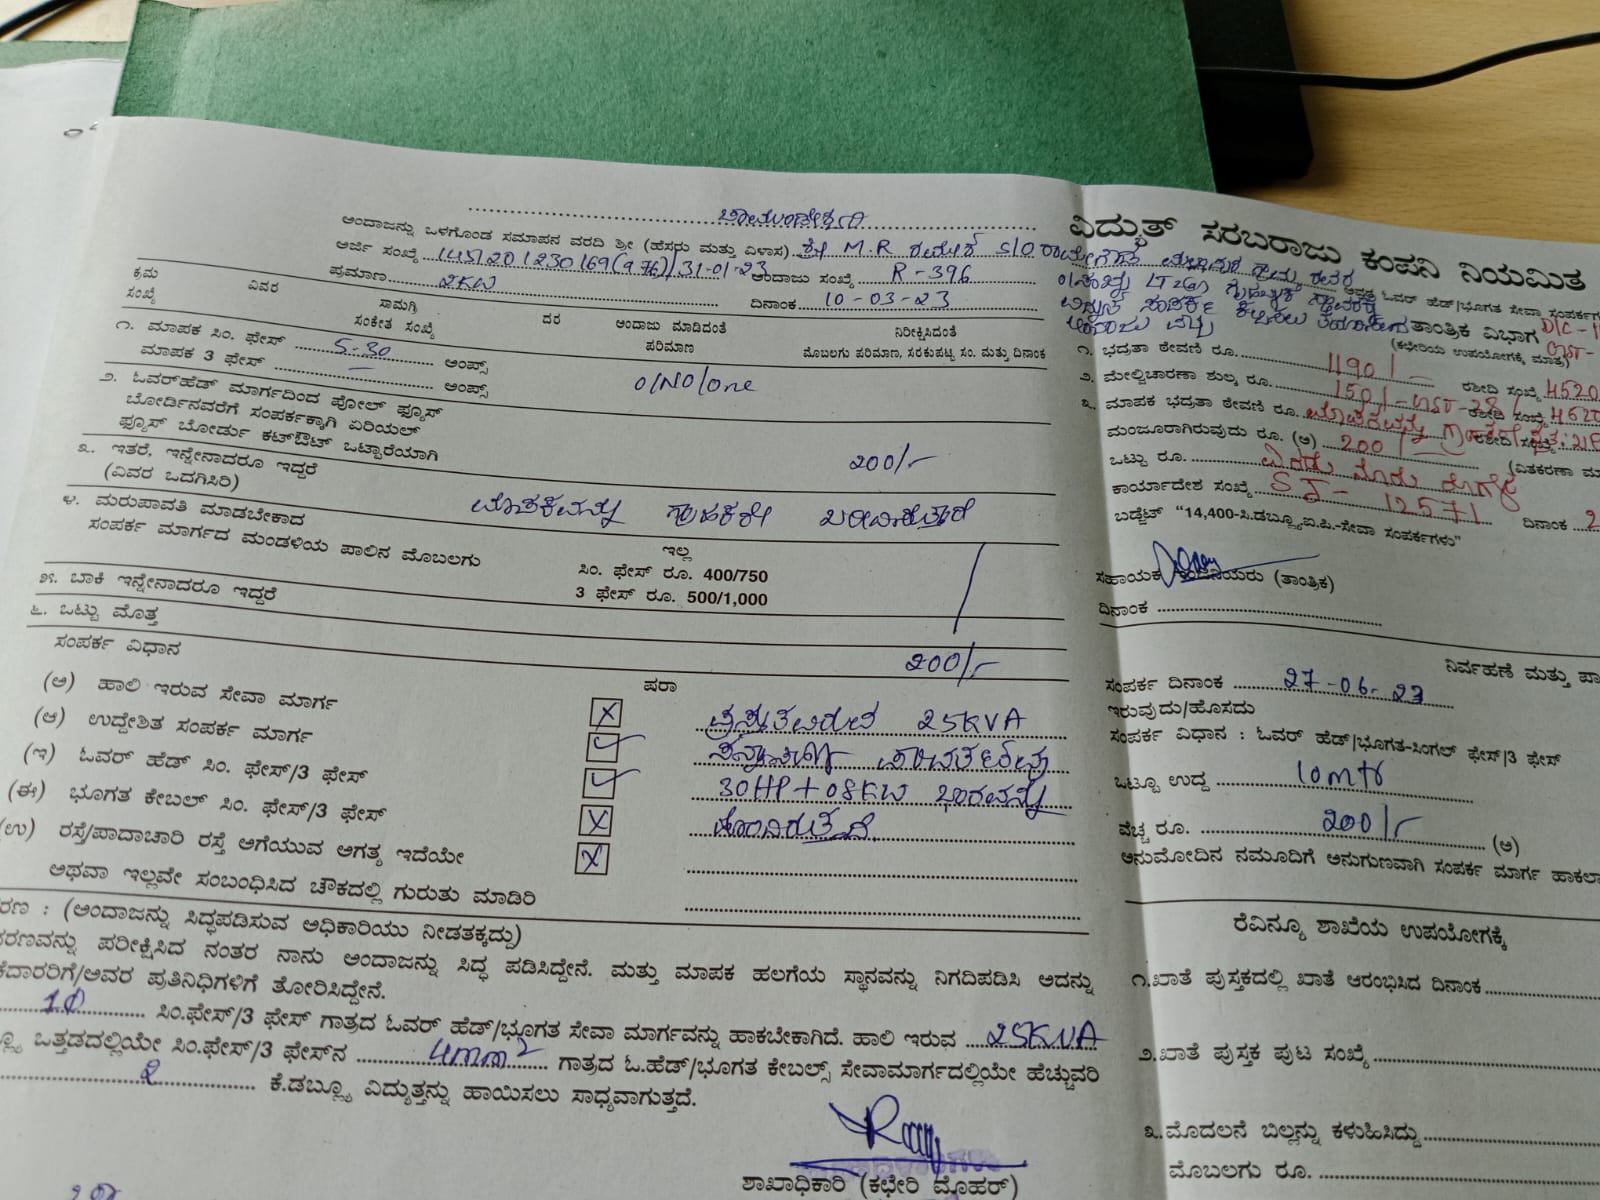 ಚಾಮುಂಡೇಶ್ವರಿ
ವಿದ್ಯುತ್ ಸರಬರಾಜು ಕಂಪನಿ ನಿಯಮಿತ
ಅಂದಾಜನ್ನು ಒಳಗೊಂಡ ಸಮಾಪನ ವರದಿ ಶ್ರೀ (ಹೆಸರು ಮತ್ತು ವಿಳಾಸ) ಶ್ರೀ M.R ರಮೇಶ S/O
ಅರ್ಜಿ ಸಂಖ್ಯೆ 1451201230169(976)/31-01-23 ಅಂದಾಜು ಸಂಖ್ಯೆ R-396
ಪ್ರಮಾಣ 2KW ದಿನಾಂಕ 10-03-23
ಕ್ರಮ ಸಂಖ್ಯೆ ವಿವರ ಸಾಮಗ್ರಿ ಸಂಕೇತ ಸಂಖ್ಯೆ ದರ ಅಂದಾಜು ಮಾಡಿದಂತೆ ಪರಿಮಾಣ ನಿರೀಕ್ಷಿಸಿದಂತೆ
ಮೊಬಲಗು ಪರಿಮಾಣ, ಸರಕುಪಟ್ಟಿ ಸಂ. ಮತ್ತು ದಿನಾಂಕ
೧. ಮಾಪಕ ಸಿಂ. ಫೇಸ್ 5-30 ಆಂಪ್ಸ್
ಮಾಪಕ 3 ಫೇಸ್ — ಆಂಪ್ಸ್ 01NO/one
೨. ಓವರ್‌ಹೆಡ್ ಮಾರ್ಗದಿಂದ ಪೋಲ್ ಫ್ಯೂಸ್
ಬೋರ್ಡಿನವರೆಗೆ ಸಂಪರ್ಕಕ್ಕಾಗಿ ಏರಿಯಲ್
ಫ್ಯೂಸ್ ಬೋರ್ಡು ಕಟ್‌ಔಟ್ ಒಟ್ಟಾರೆಯಾಗಿ
೩. ಇತರೆ, ಇನ್ನೇನಾದರೂ ಇದ್ದರೆ 200/-
(ವಿವರ ಒದಗಿಸಿರಿ)
ಮಾಪಕವನ್ನು ಗ್ರಾಹಕರೇ
೪. ಮರುಪಾವತಿ ಮಾಡಬೇಕಾದ
ಸಂಪರ್ಕ ಮಾರ್ಗದ ಮಂಡಳಿಯ ಪಾಲಿನ ಮೊಬಲಗು
ಇಲ್ಲ
ಸಿಂ. ಫೇಸ್ ರೂ. 400/750
3 ಫೇಸ್ ರೂ. 500/1,000
೫. ಬಾಕಿ ಇನ್ನೇನಾದರೂ ಇದ್ದರೆ
೬. ಒಟ್ಟು ಮೊತ್ತ 200/-
ಸಂಪರ್ಕ ವಿಧಾನ ಷರಾ
(ಅ) ಹಾಲಿ ಇರುವ ಸೇವಾ ಮಾರ್ಗ X
(ಆ) ಉದ್ದೇಶಿತ ಸಂಪರ್ಕ ಮಾರ್ಗ
(ಇ) ಓವರ್ ಹೆಡ್ ಸಿಂ. ಫೇಸ್/3 ಫೇಸ್
(ಈ) ಭೂಗತ ಕೇಬಲ್ ಸಿಂ. ಫೇಸ್/3 ಫೇಸ್ X
(ಉ) ರಸ್ತೆ/ಪಾದಾಚಾರಿ ರಸ್ತೆ ಅಗೆಯುವ ಅಗತ್ಯ ಇದೆಯೇ X
ಅಥವಾ ಇಲ್ಲವೇ ಸಂಬಂಧಿಸಿದ ಚೌಕದಲ್ಲಿ ಗುರುತು ಮಾಡಿರಿ
ಪ್ರಸ್ತುತವಿರುವ 25KVA
ಪರಿವರ್ತಕವು
30HP+08KW ಭಾರವನ್ನು
ಹೊಂದಿರುತ್ತದೆ.
(ಅಂದಾಜನ್ನು ಸಿದ್ಧಪಡಿಸುವ ಅಧಿಕಾರಿಯು ನೀಡತಕ್ಕದ್ದು)
ಪರೀಕ್ಷಿಸಿದ ನಂತರ ನಾನು ಅಂದಾಜನ್ನು ಸಿದ್ಧ ಪಡಿಸಿದ್ದೇನೆ. ಮತ್ತು ಮಾಪಕ ಹಲಗೆಯ ಸ್ಥಾನವನ್ನು ನಿಗದಿಪಡಿಸಿ ಅದನ್ನು
ಪ್ರತಿನಿಧಿಗಳಿಗೆ ತೋರಿಸಿದ್ದೇನೆ.
1Φ ಸಿಂ.ಫೇಸ್/3 ಫೇಸ್ ಗಾತ್ರದ ಓವರ್ ಹೆಡ್/ಭೂಗತ ಸೇವಾ ಮಾರ್ಗವನ್ನು ಹಾಕಬೇಕಾಗಿದೆ. ಹಾಲಿ ಇರುವ 25KVA
ಒತ್ತಡದಲ್ಲಿಯೇ ಸಿಂ.ಫೇಸ್/3 ಫೇಸ್‌ನ 4mm² ಗಾತ್ರದ ಓ.ಹೆಡ್/ಭೂಗತ ಕೇಬಲ್ಸ್ ಸೇವಾಮಾರ್ಗದಲ್ಲಿಯೇ ಹೆಚ್ಚುವರಿ
2 ಕೆ.ಡಬ್ಲ್ಯೂ ವಿದ್ಯುತ್ತನ್ನು ಹಾಯಿಸಲು ಸಾಧ್ಯವಾಗುತ್ತದೆ.
ಶಾಖಾಧಿಕಾರಿ (ಕಛೇರಿ ಮೊಹರ್)
ತಾಂತ್ರಿಕ ವಿಭಾಗ
(ಕಛೇರಿಯ ಉಪಯೋಗಕ್ಕೆ ಮಾತ್ರ)
೧. ಭದ್ರತಾ ಠೇವಣಿ ರೂ. 1190/- ರಶೀದಿ ಸಂಖ್ಯೆ 4520
೨. ಮೇಲ್ವಿಚಾರಣಾ ಶುಲ್ಕ ರೂ. 150/-GST-28/ ರಶೀದಿ ಸಂಖ್ಯೆ 4520
೩. ಮಾಪಕ ಭದ್ರತಾ ಠೇವಣಿ ರೂ.
ಮಂಜೂರಾಗಿರುವುದು ರೂ. (ಅ) 200/-
ಒಟ್ಟು ರೂ.
ಕಾರ್ಯಾದೇಶ ಸಂಖ್ಯೆ SJ-12571 ದಿನಾಂಕ
ಬಡ್ಜೆಟ್ "14,400-ಸಿ.ಡಬ್ಲ್ಯೂ.ಐ.ಪಿ.-ಸೇವಾ ಸಂಪರ್ಕಗಳು"
ಸಹಾಯಕ ಇಂಜಿನಿಯರು (ತಾಂತ್ರಿಕ)
ದಿನಾಂಕ
ನಿರ್ವಹಣೆ ಮತ್ತು
ಸಂಪರ್ಕ ದಿನಾಂಕ 27-06-23
ಇರುವುದು/ಹೊಸದು
ಸಂಪರ್ಕ ವಿಧಾನ : ಓವರ್ ಹೆಡ್/ಭೂಗತ-ಸಿಂಗಲ್ ಫೇಸ್/3 ಫೇಸ್
ಒಟ್ಟೂ ಉದ್ದ 10mtr
ವೆಚ್ಚ ರೂ. 200/- (ಅ)
ಅನುಮೋದಿನ ನಮೂದಿಗೆ ಅನುಗುಣವಾಗಿ ಸಂಪರ್ಕ ಮಾರ್ಗ
ರೆವಿನ್ಯೂ ಶಾಖೆಯ ಉಪಯೋಗಕ್ಕೆ
೧.ಖಾತೆ ಪುಸ್ತಕದಲ್ಲಿ ಖಾತೆ ಆರಂಭಿಸಿದ ದಿನಾಂಕ
೨.ಖಾತೆ ಪುಸ್ತಕ ಪುಟ ಸಂಖ್ಯೆ
೩.ಮೊದಲನೆ ಬಿಲ್ಲನ್ನು ಕಳುಹಿಸಿದ್ದು
ಮೊಬಲಗು ರೂ.